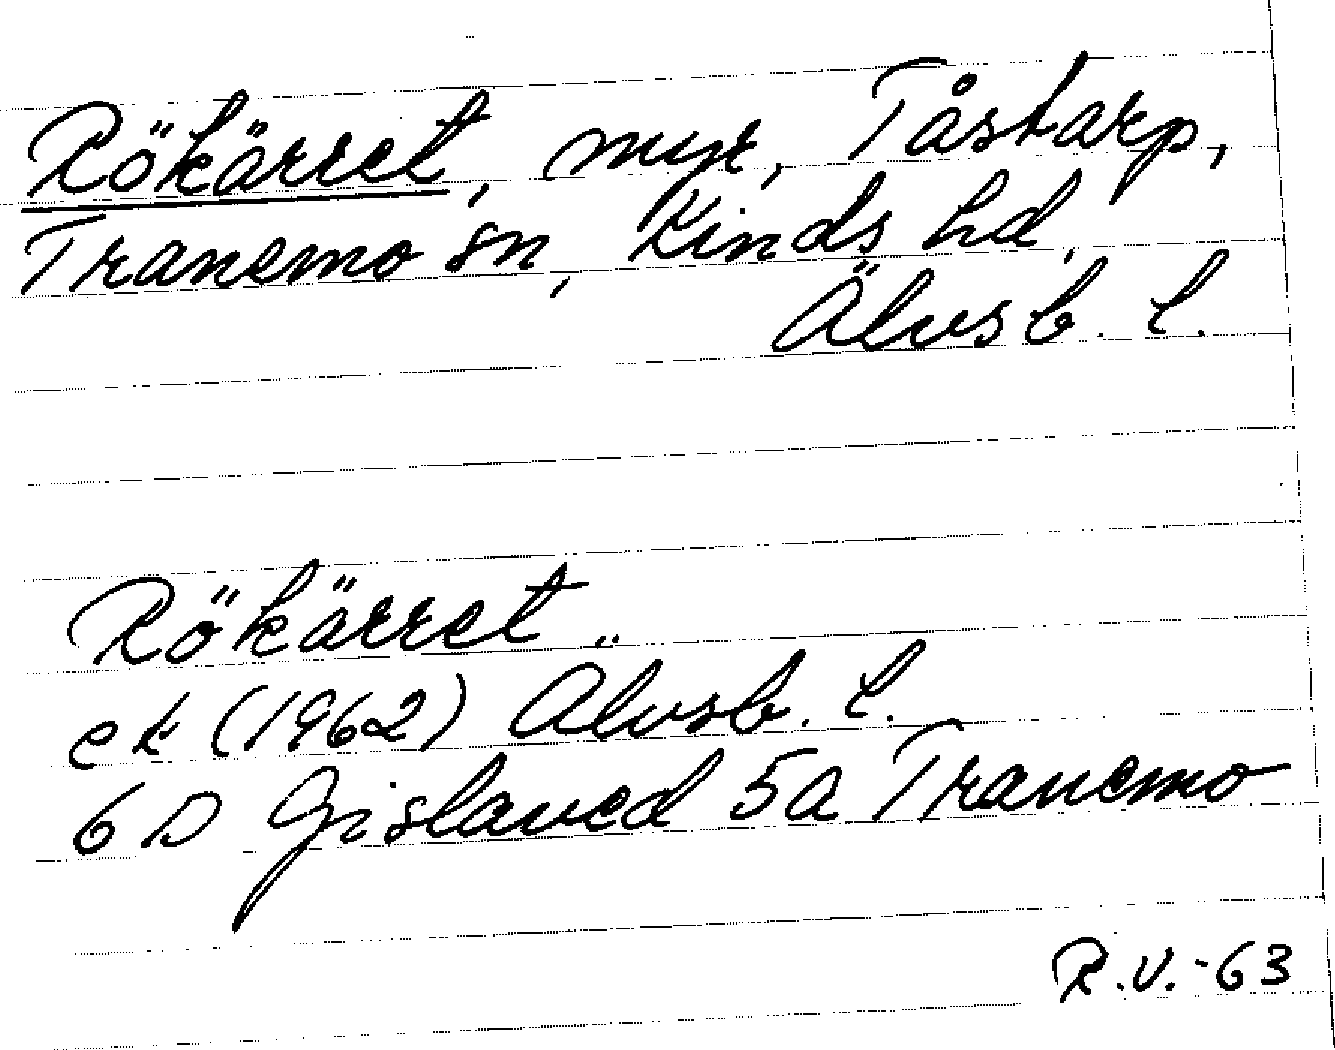 Rökärret, myr, Tåstarp,
Tranemo sn, Kinds hd,
Älvsb. l.
Rökärret
ek (1962) Älvsb. l.
6 D Gislaved 5a Tranemo
R.V.-63